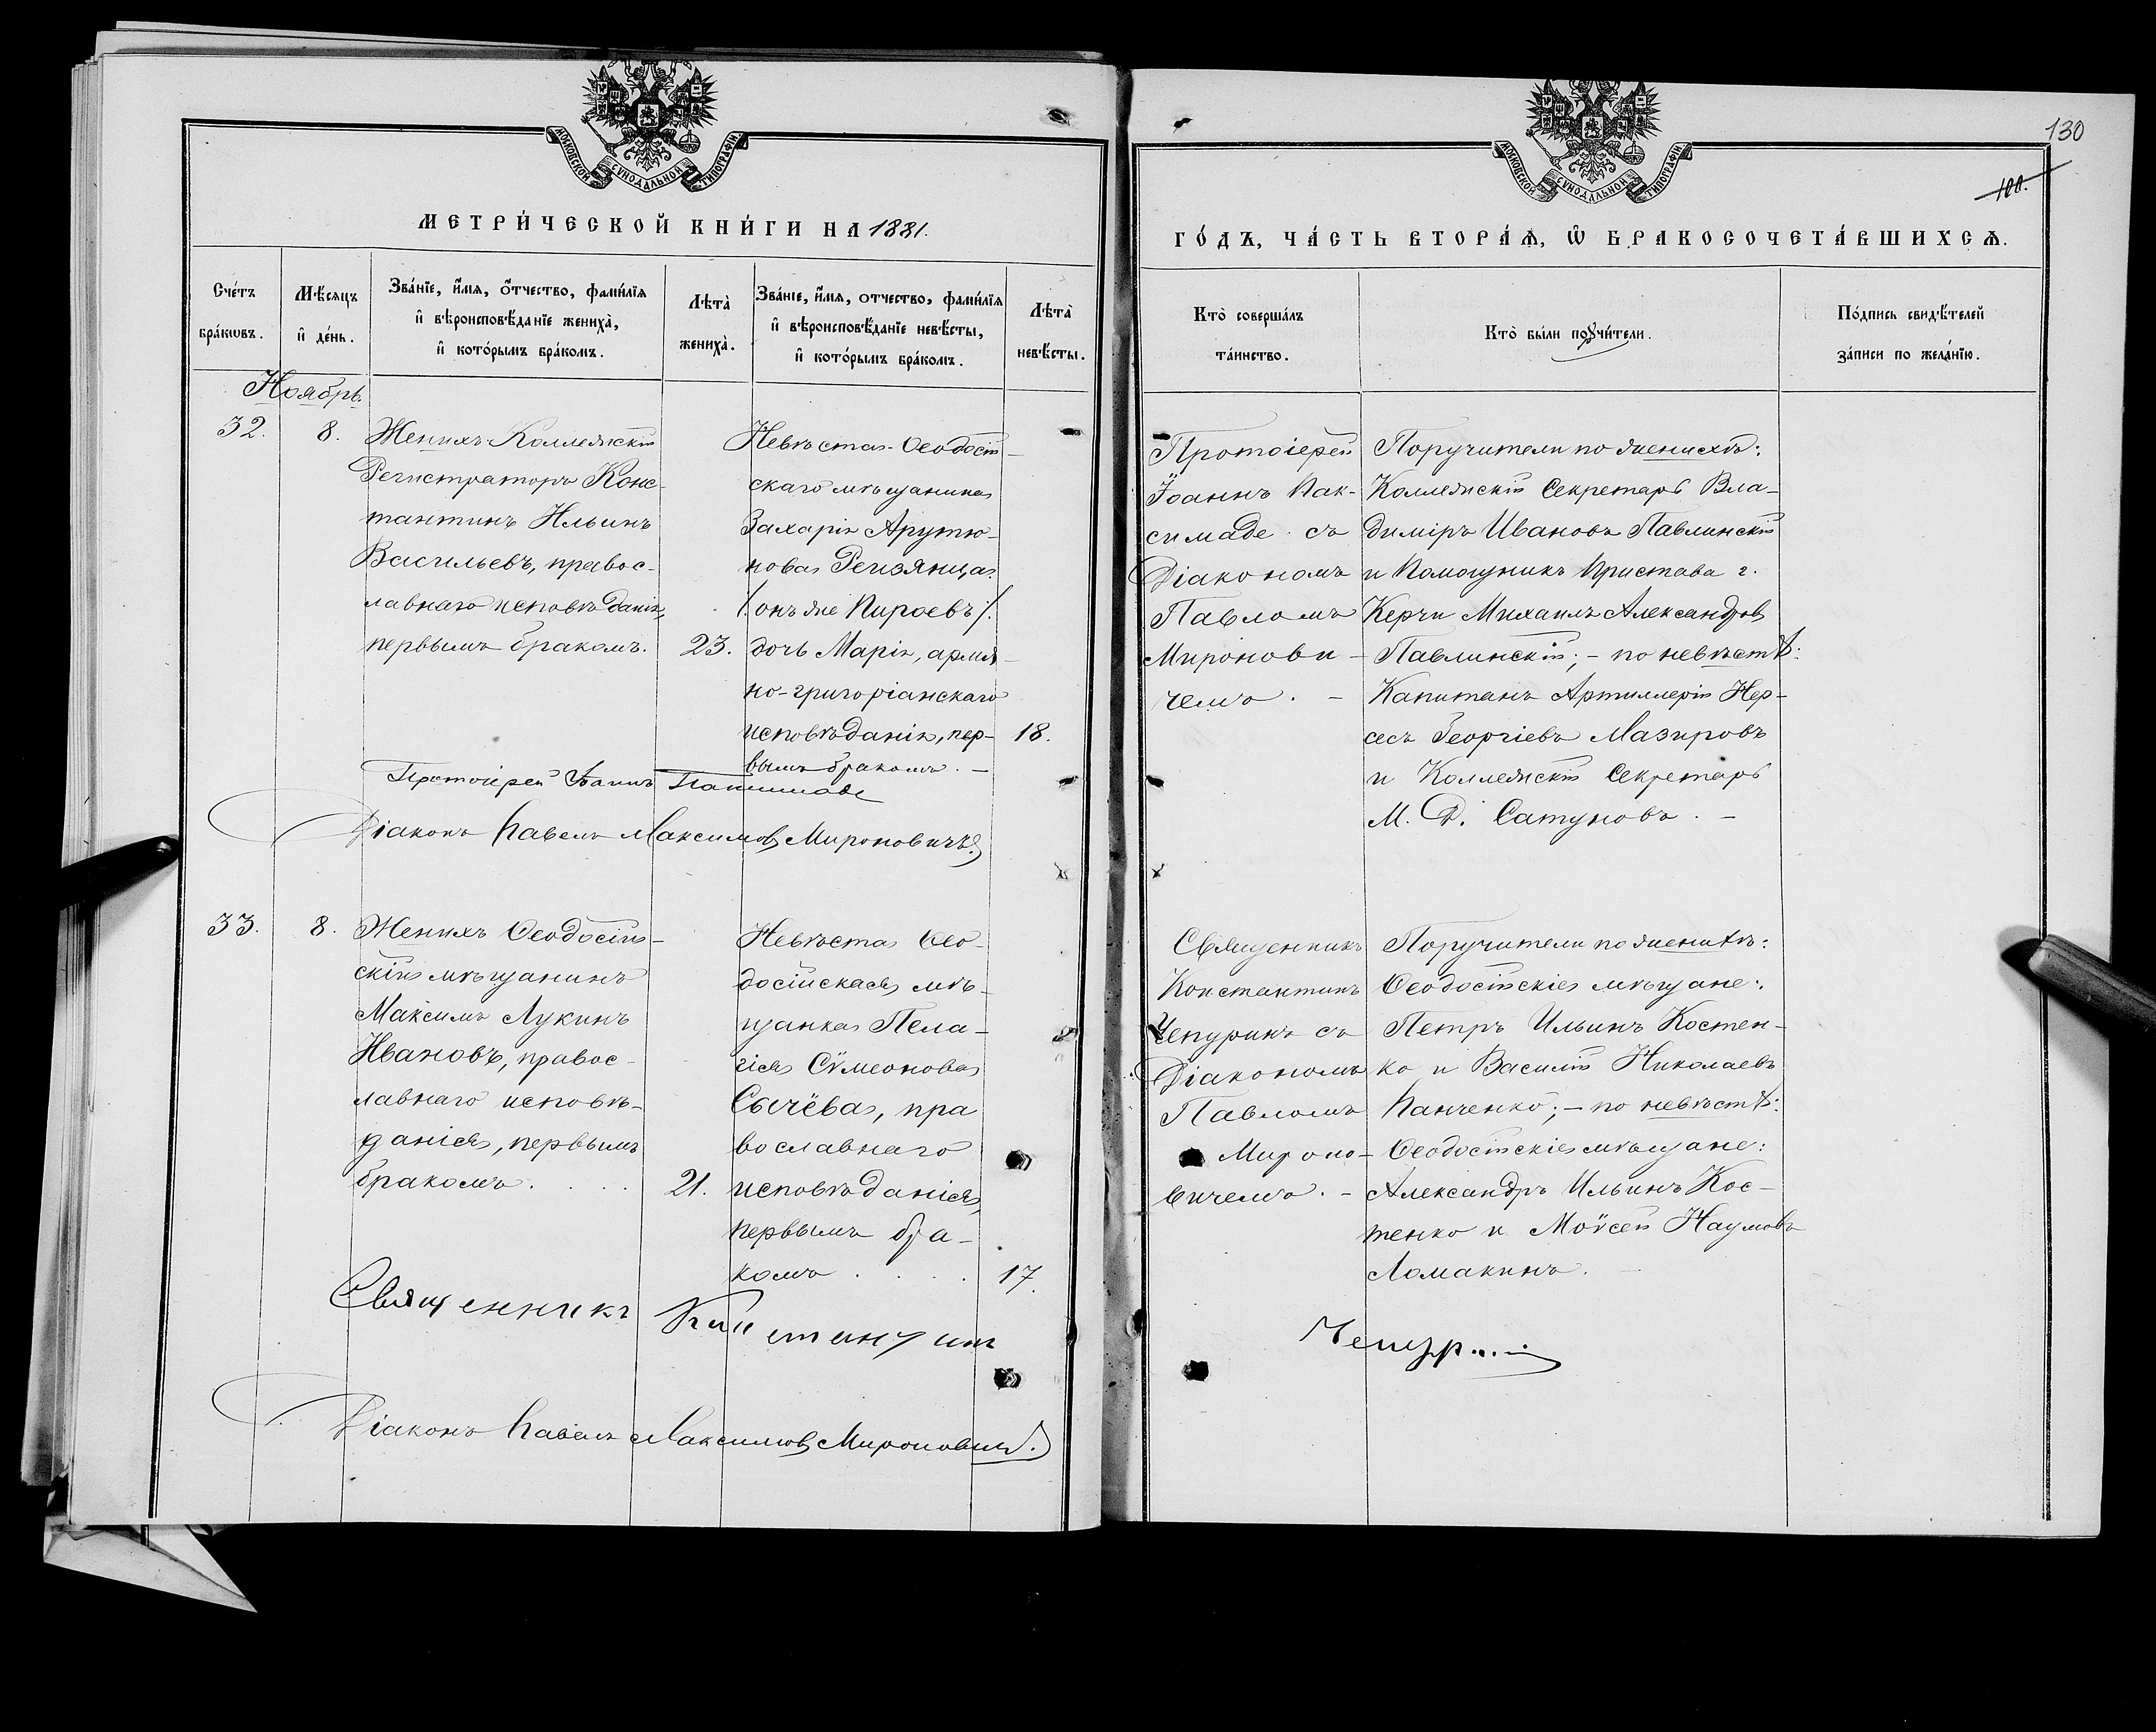 МОСКОВСКОЙ СѴНОДАЛЬНОЙ ТИПОГРАФІИ
МЕТРИ́ЧЕСКОЙ КНИ́ГИ НА 1881.
Сче́тъ
бра́кѡвъ.
Мѣ́сяцъ
и҆ де́нь.
Зва́нїе, и҆́мя, о҆́тчество, фами́лїя
и҆ вѣроисповѣ́данїе жениха̀,
и҆ кото́рымъ бра́комъ.
Лѣта̀
жениха̀.
Зва́нїе, и҆́мя, отчество, фами́лїя
и҆ вѣроисповѣ́данїе невѣ́сты,
и҆ кото́рымъ бра́комъ.
Лѣта̀
невѣ́сты.
Ноябрь.
32.
8.
Женихъ Коллежскій
Регистраторъ Конс-
тантинъ Ильинъ
Васильевъ, правос-
лавнаго исповѣданія,
первымъ бракомъ.
23.
Невѣста Ѳеодосій-
скаго мѣщанина
Захарія Арутю-
нова Реизянца
/онъ же Пироевъ/.
дочь Марія, армя-
но-григоріанскаго
исповѣданія, пер-
вымъ бракомъ. —
18.
Протоіерей Іоаннъ Паксимаде
Діаконъ Павелъ Максимовъ Мироновичъ.
33.
8.
Женихъ Ѳеодосій-
скій мѣщанинъ
Максимъ Лукинъ
Ивановъ, правос-
лавнаго исповѣ-
данія, первымъ
бракомъ. . . .
21.
Невѣста Ѳео-
досійская мѣ-
щанка Пела-
гія Сѵмеонова
Сычёва, пра
вославнаго
исповѣданія,
первымъ бра-
комъ . . . .
17.
Священникъ Константинъ
Діаконъ Павелъ Максимовъ Мироновичъ.
130
100.
МОСКОВСКОЙ СѴНОДАЛЬНОЙ ТИПОГРАФІИ
ГО́ДЪ, ЧА́СТЬ ВТОРА́Ѧ, Ѡ҆ БРАКОСОЧЕТА́ВШИХСѦ.
Кто̀ соверша́лъ
та́инство.
Кто̀ бы́ли поꙋчи́тели.
По́дпись свидѣ́телей
за́писи по жела́нїю.
Протоіерей
Іоаннъ Пак-
симаде съ
Діакономъ
Павломъ
Миронови-
чемъ. —
Поручители по женихѣ:
Коллежскій Секретарь Вла-
диміръ Ивановъ Павлинскій
и Помощникъ Пристава г.
Керчи Михаилъ Александровъ
Павлинскій; — по невѣстѣ:
Капитанъ Артиллеріи Нер-
сесъ Георгіевъ Мазировъ
и Коллежскій Секретарь
М. Д. Сатуновъ. —
Священникъ
Константинъ
Чепуринъ съ
Діакономъ
Павломъ
Мироно-
вичемъ. —
Поручители по женихѣ:
Ѳеодосійскіе мѣщане:
Петръ Ильинъ Костен-
ко и Василій Николаевъ
Панченко; — по невѣстѣ:
Ѳеодосійскіе мѣщане:
Александръ Ильинъ Кос-
тенко и Моѵсей Наумовъ
Ломакинъ. —
Чепуринъ